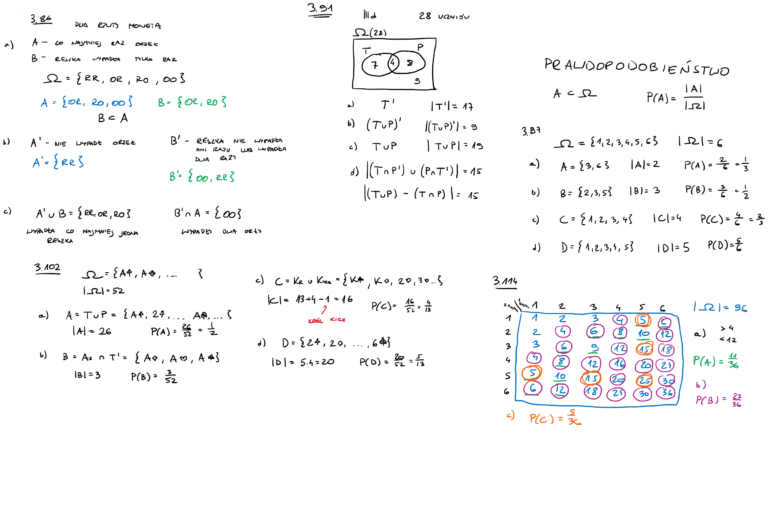 3.86 DWA RZUTY MONETĄ
a) A - CO NAJMNIEJ RAZ ORZEŁ
B - RESZKA WYPADŁA TYLKO RAZ
Ω = {RR, OR, RO, OO}
A = {OR, RO, OO} B = {OR, RO}
B ⊂ A
b) A' - NIE WYPADŁ ORZEŁ
A' = {RR}
B' - RESZKA NIE WYPADŁA
ANI RAZU LUB WYPADŁA
DWA RAZY
B' = {OO, RR}
c) A' ∪ B = {RR, OR, RO} B' ∩ A = {OO}
WYPADŁA CO NAJMNIEJ JEDNA
RESZKA
WYPADŁY DWA ORŁY
3.91 III d 28 UCZNIÓW
Ω (28)
T P
7 4 8
9
a) T' |T'| = 17
b) (T∪P)' |(T∪P)'| = 9
c) T∪P |T∪P| = 19
d) |(T∩P') ∪ (P∩T')| = 15
|(T∪P) - (T∩P)| = 15
PRAWDOPODOBIEŃSTWO
A ⊂ Ω P(A) = |A|/|Ω|
3.97
Ω = {1,2,3,4,5,6} |Ω| = 6
a) A = {3,6} |A| = 2 P(A) = 2/6 = 1/3
b) B = {2,3,5} |B| = 3 P(B) = 3/6 = 1/2
c) C = {1,2,3,4} |C| = 4 P(C) = 4/6 = 2/3
d) |D| = 5 P(D) = 5/6
3.102 Ω = {A♣, A♦, ... }
|Ω| = 52
a) A = T∪P = {A♣, 2♣, ... A♠, ...}
|A| = 26 P(A) = 26/52 = 1/2
b)
|B| = 3 P(B) = 3/52
c)
|C| = 13+4-1 = 16 P(C) = 16/52 = 4/13
KRÓL KIER
d)
|D| = 5·4 = 20 P(D) = 20/52 = 5/13
3.114
1 2 3 4 5 6
1 1 2 3 4 5 6
2 2 4 6 8 10 12
3 3 6 9 12 15 18
4 4 8 12 16 20 24
5 5 10 15 20 25 30
6 6 12 18 24 30 36
|Ω| = 36
a) > 4
< 12
P(A) = 11/36
b)
P(B) = 23/36
c) P(C) = 5/36